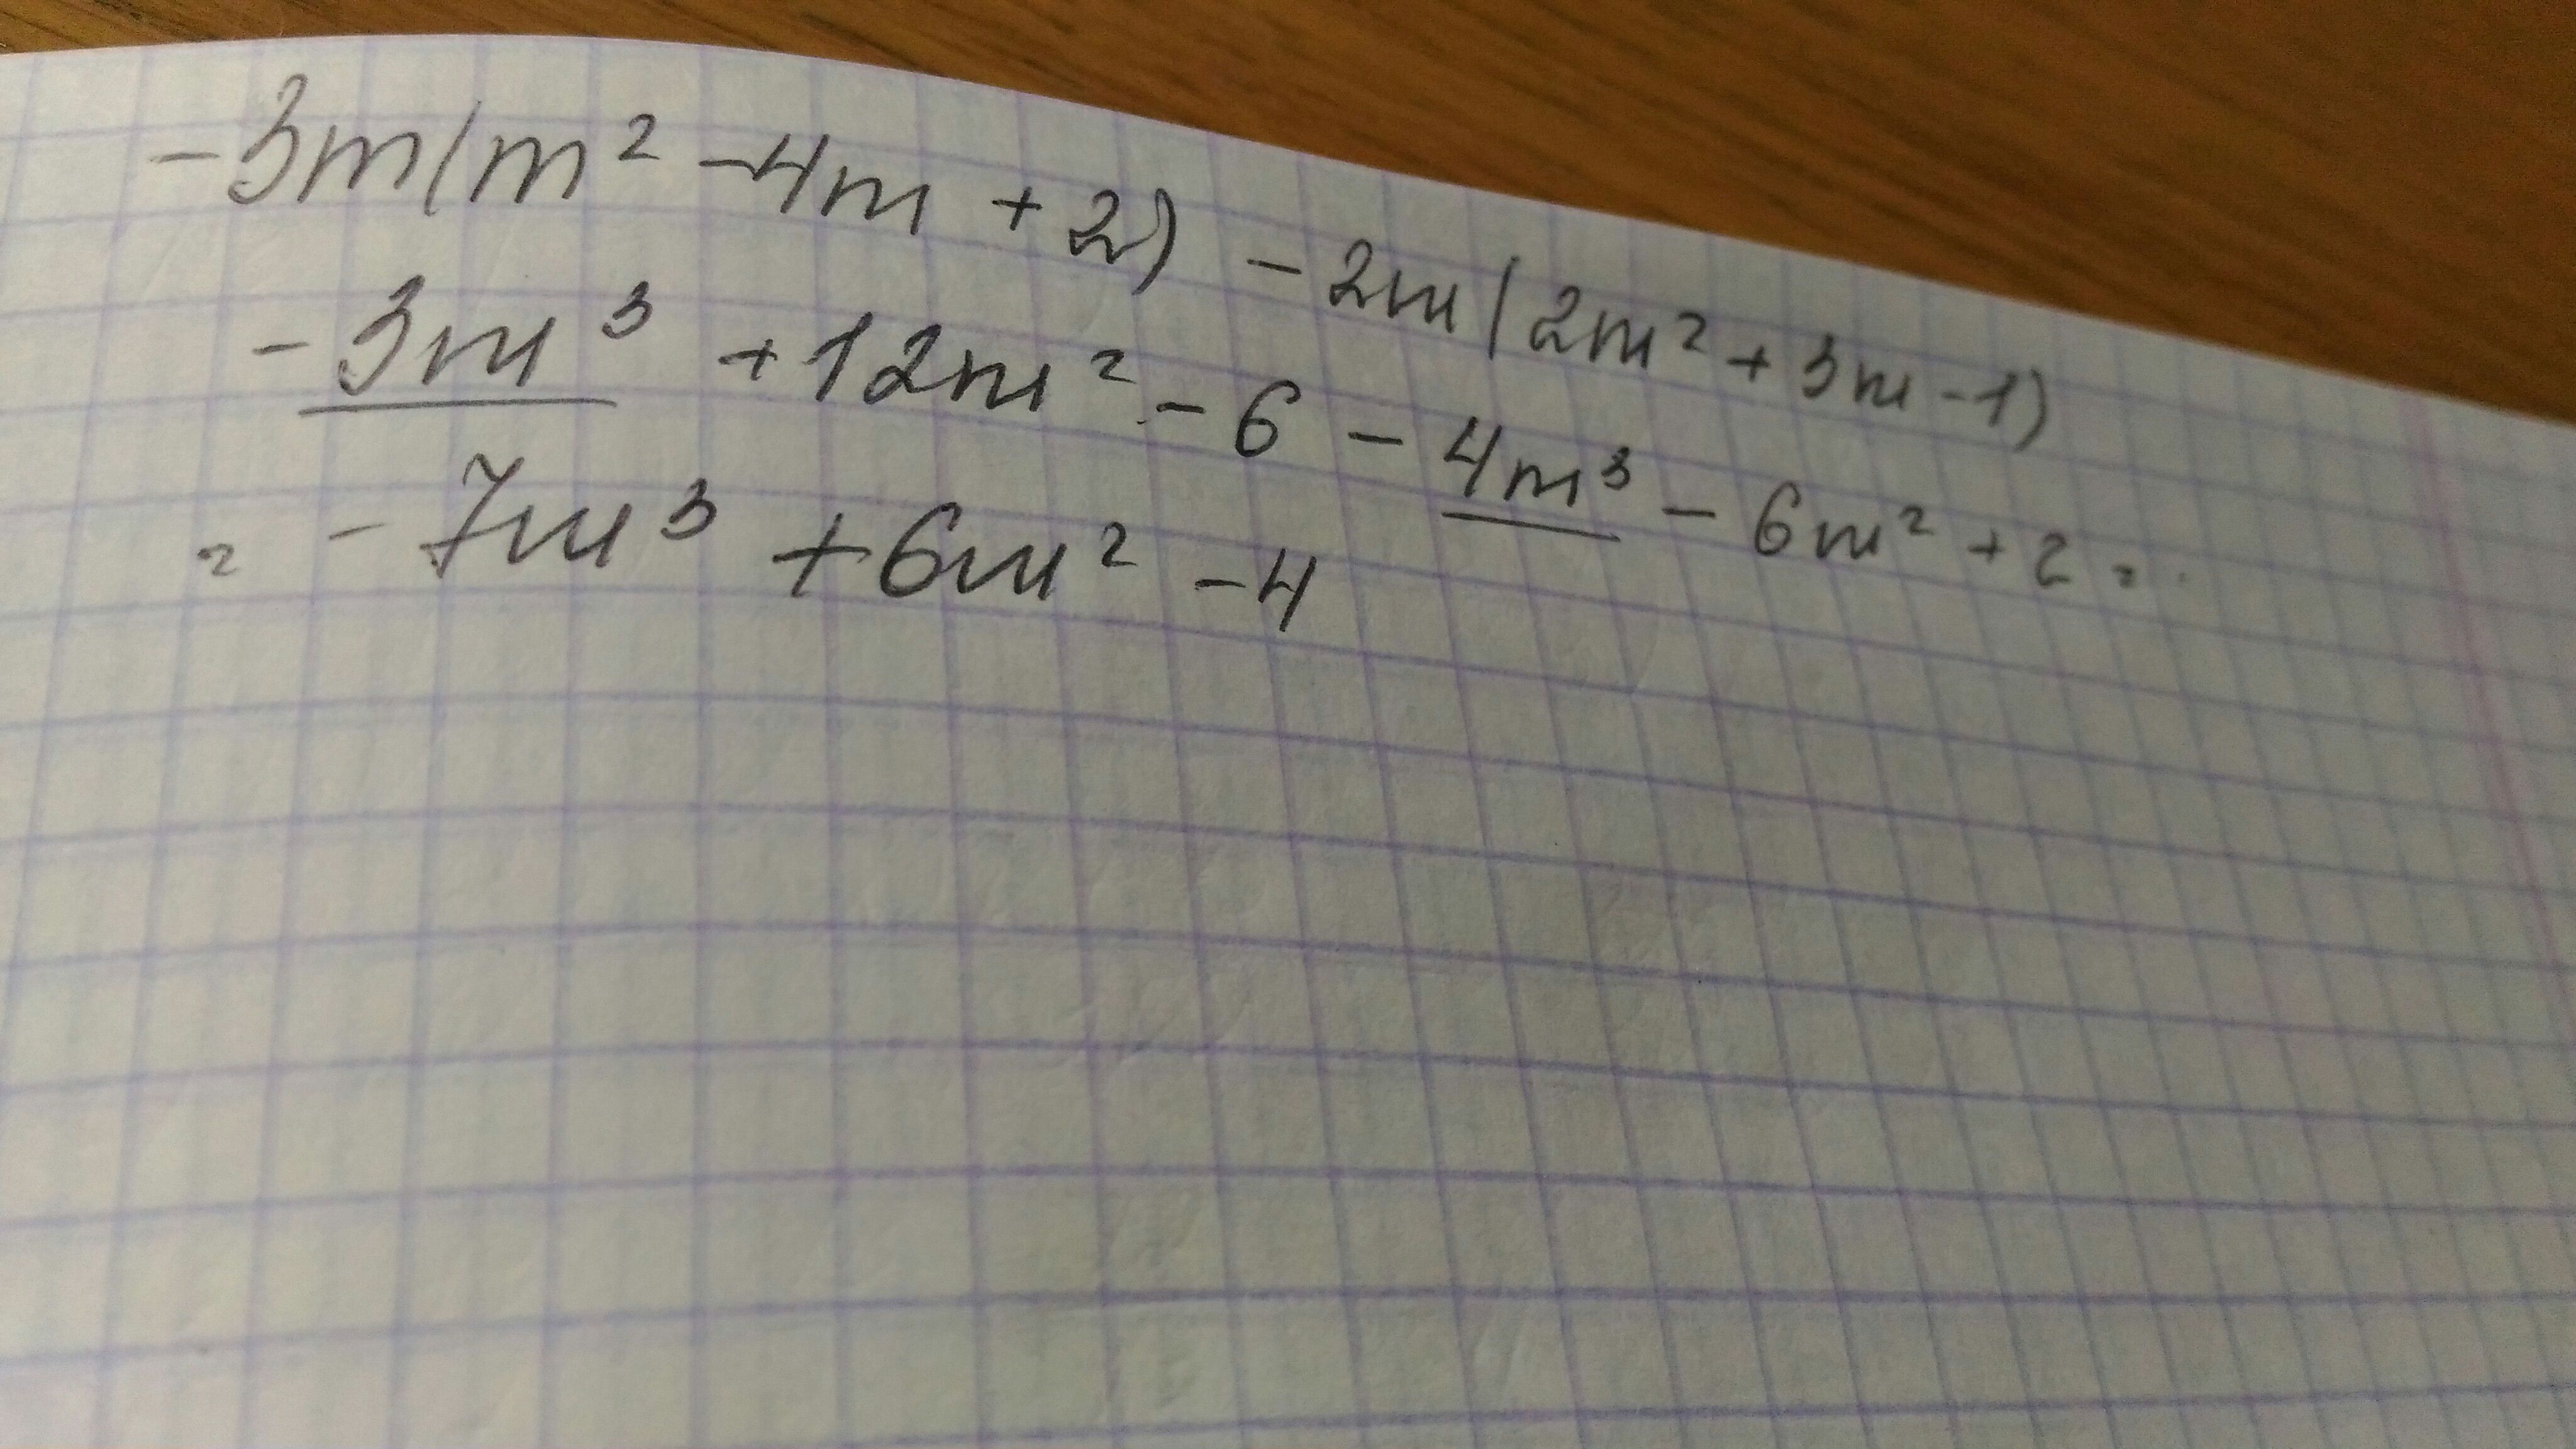 -3m(m² -4m +2) -2m(2m² +3m -1)
-3m³ +12m² -6 -4m³ -6m² +2 =
= -7m³ +6m² -4